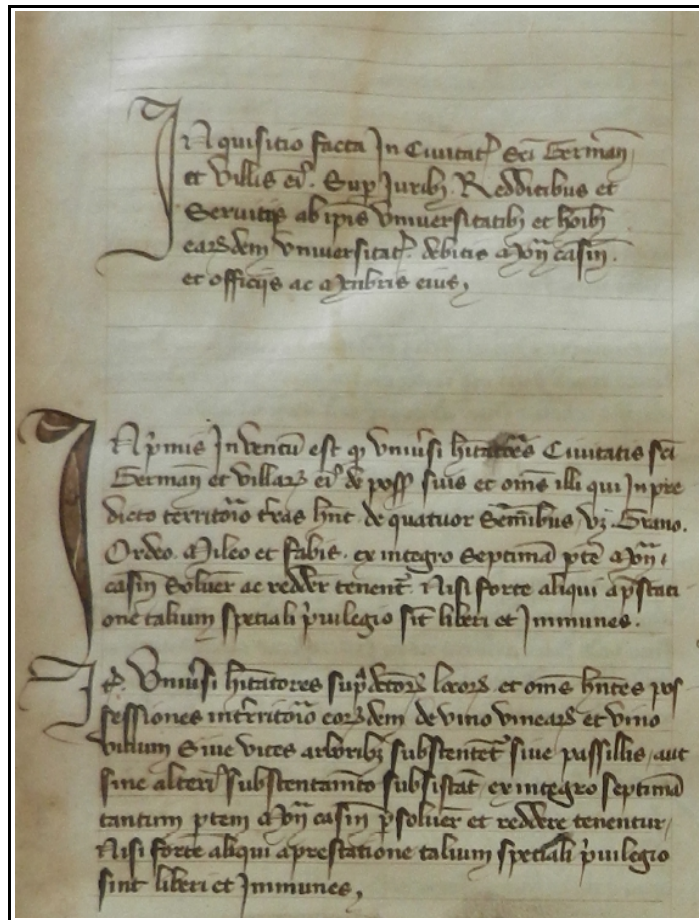 INquisitio facta In Ciuitat Sci German
et Villis ei. Sup Iurib3 Redditibus et
Seruitiis ab ipis Vniuersitatib3 et hoib3
earudem Vniuersitat. debitis Mon casin.
et officijs ac Membris eius,
INpmis Inuentu est q Vniusi hitatores Ciuitatis sci
German et villar ei de poss suis et oms illi qui In pre
dicto territorio tras hnt. de quatuor Seminibus vz. Grano.
Ordeo. Mileo et fabis. ex integro Septima pte Mon
casin Soluer ac redder tenent. Nisi forte aliqui a pstati
one talium speciali puilegio sit liberi et Immunes.
It Vniusi hitatores supdctor locor et oms hntes pos
sessiones in territorio eorudem de vino vinear et vino
vitium Siue vites arborib3 substentet siue passillis, aut
sine alteri substentamto subsistat, ex integro septima
tantum ptem Mon casin psoluer et reddere tenentur,
Nisi forte aliqui a prestatione talium speciali puilegio
sint liberi et Immunes,